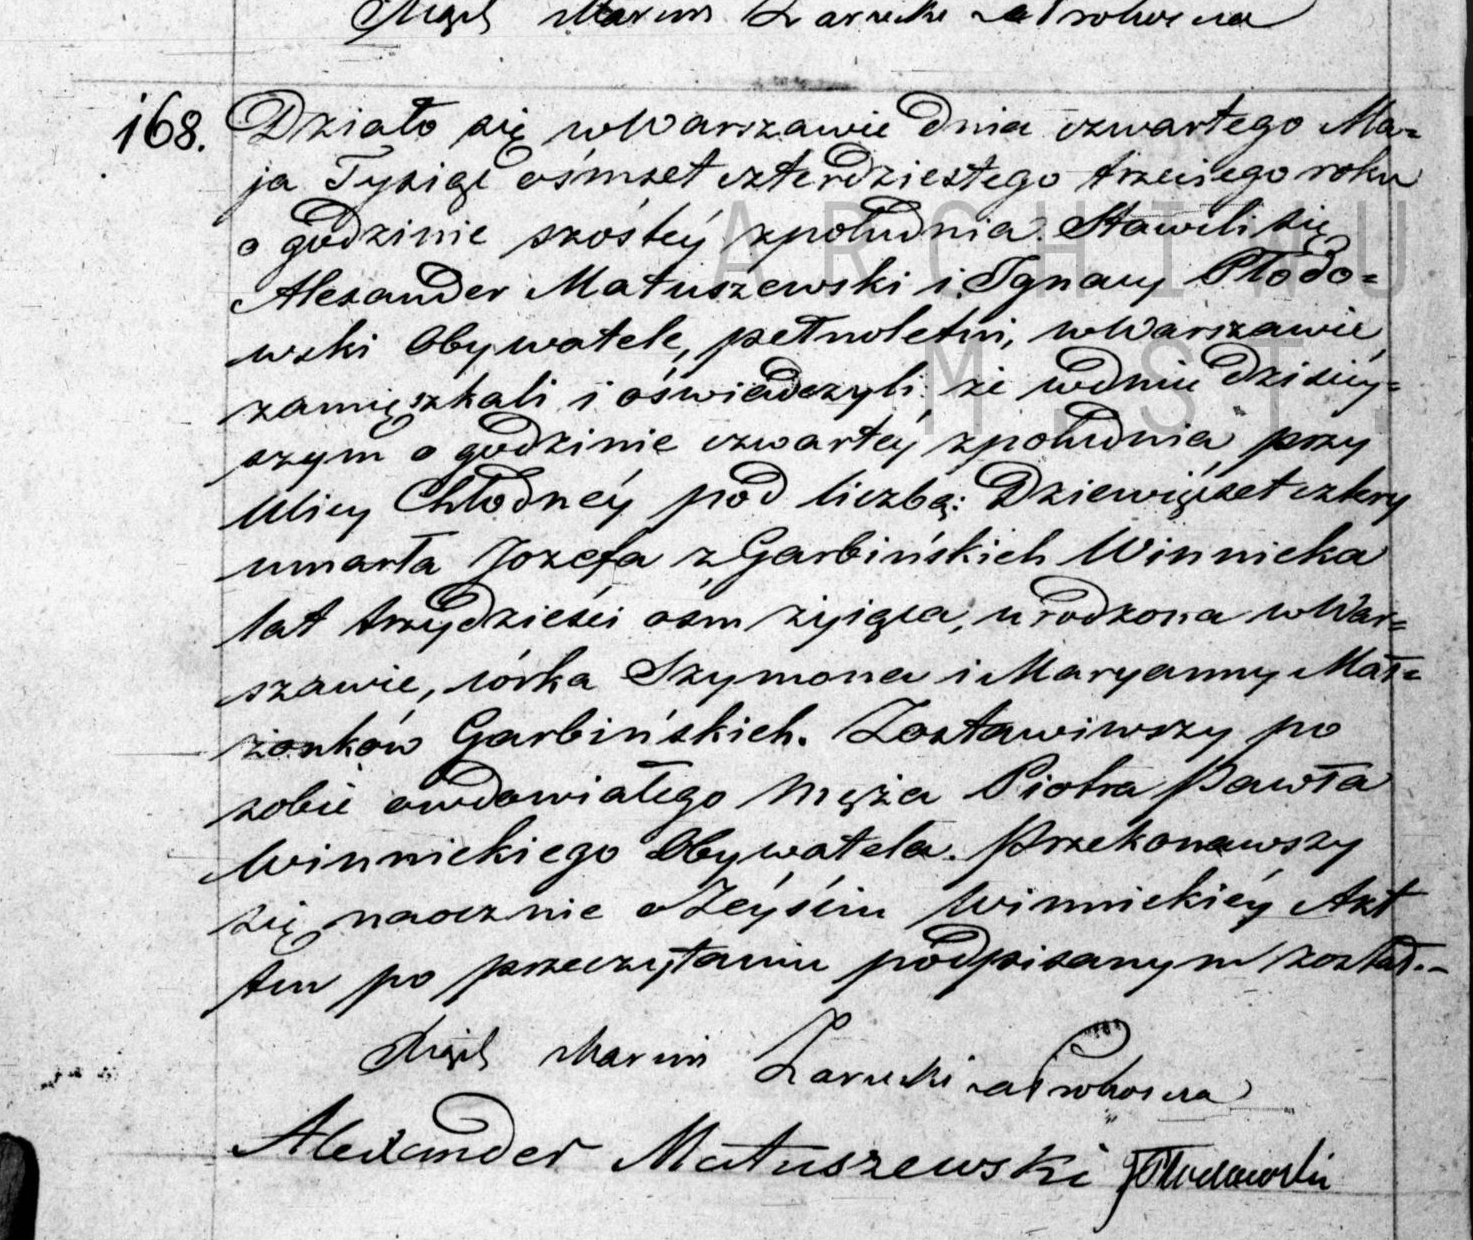 Marcin
168. Działo się w Warszawie dnia czwartego Ma=
ja Tysiąc ośmset czterdziestego trzeciego roku
o godzinie szóstéy zpołudnia. Stawili się
Alexander Matuszewski i Ignacy Płodo=
wski Obywatele, pełnoletni, w Warszawie
zamięszkali i oświadczyli; że wdniu dzisiey=
szym o godzinie czwartéy zpołudnia przy
Ulicy Chłodnéy pod liczbą: Dziewięćset cztery
umarła Jozefa z Garbińskich Winnicka
lat trzydzieści osm żyiąca, urodzona w War=
szawie, córka Szymona i Maryanny Mał=
żonków Garbińskich. Zostawiwszy po
sobie owdowiałego Męża Piotra Pawła
Winnickiego Obywatela. Przekonawszy
się naocznie o Zéyściu Winnickiéy Akt
ten po przeczytaniu podpisanym został.-
Marcin
Alexander Matuszewski
ARCHIWU
M.ST.